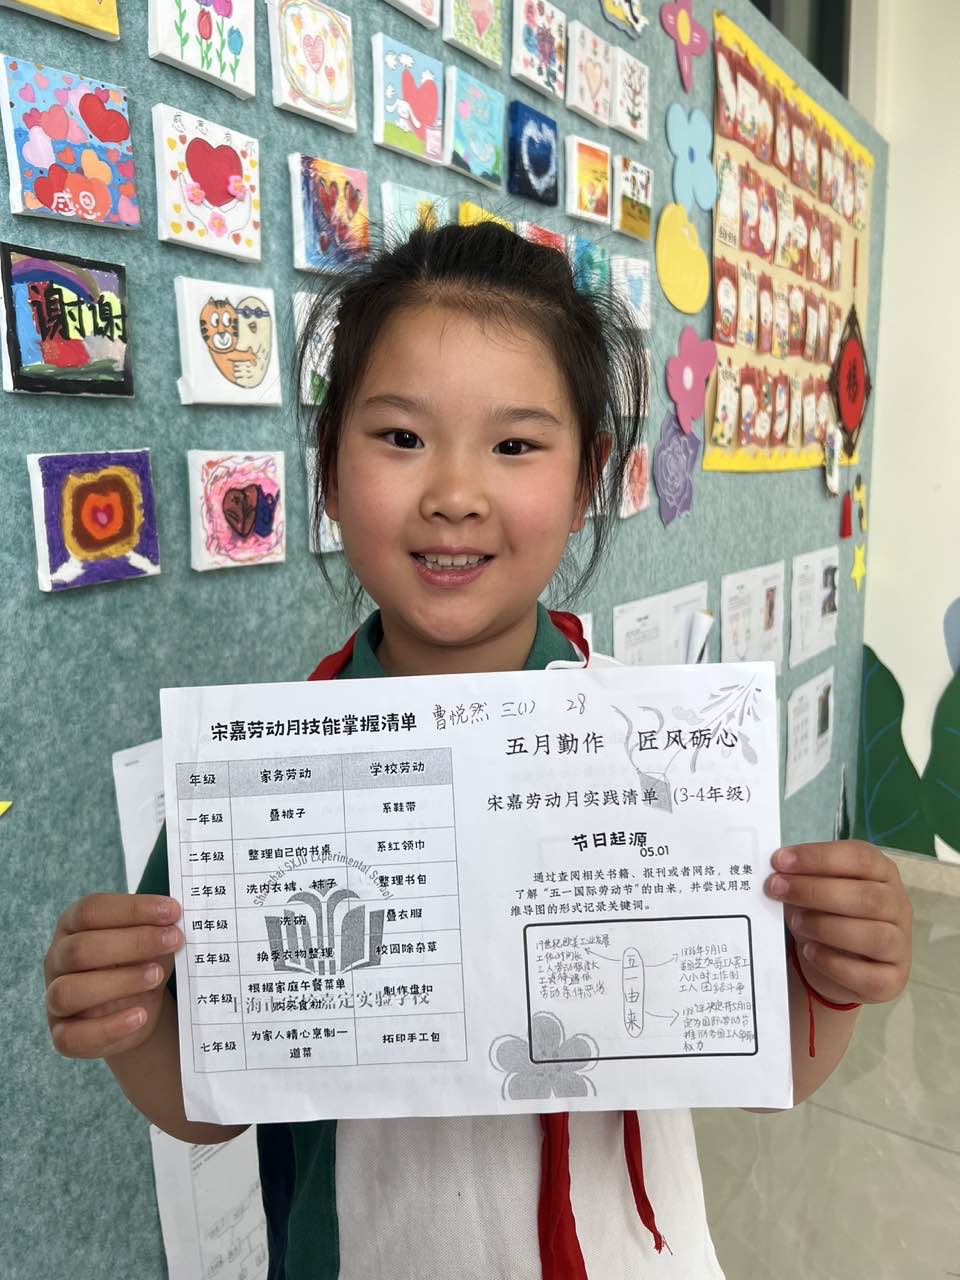 感恩
谢谢
福
宋嘉劳动月技能掌握清单 曹悦然 三(1) 28
年级 家务劳动 学校劳动
一年级 叠被子 系鞋带
二年级 整理自己的书桌 系红领巾
三年级 洗内衣裤、袜子 整理书包
四年级 洗碗 叠衣服
五年级 换季衣物整理 校园除杂草
六年级 根据家庭午餐菜单
购买食材 制作盘扣
七年级 为家人精心烹制一
道菜 拓印手工包
Shanghai SXJD Experimental School
五月勤作 匠风砺心
宋嘉劳动月实践清单 (3-4年级)
节日起源
05.01
通过查阅相关书籍、报刊或者网络，搜集
了解“五一国际劳动节”的由来，并尝试用思
维导图的形式记录关键词。
19世纪欧美工业发展
工作时间长
工人劳动强度大
劳动条件恶劣
五一由来
1886年5月1日
美国芝加哥工人罢工
八小时工作制
工人团结斗争
定为国际劳动节
权力